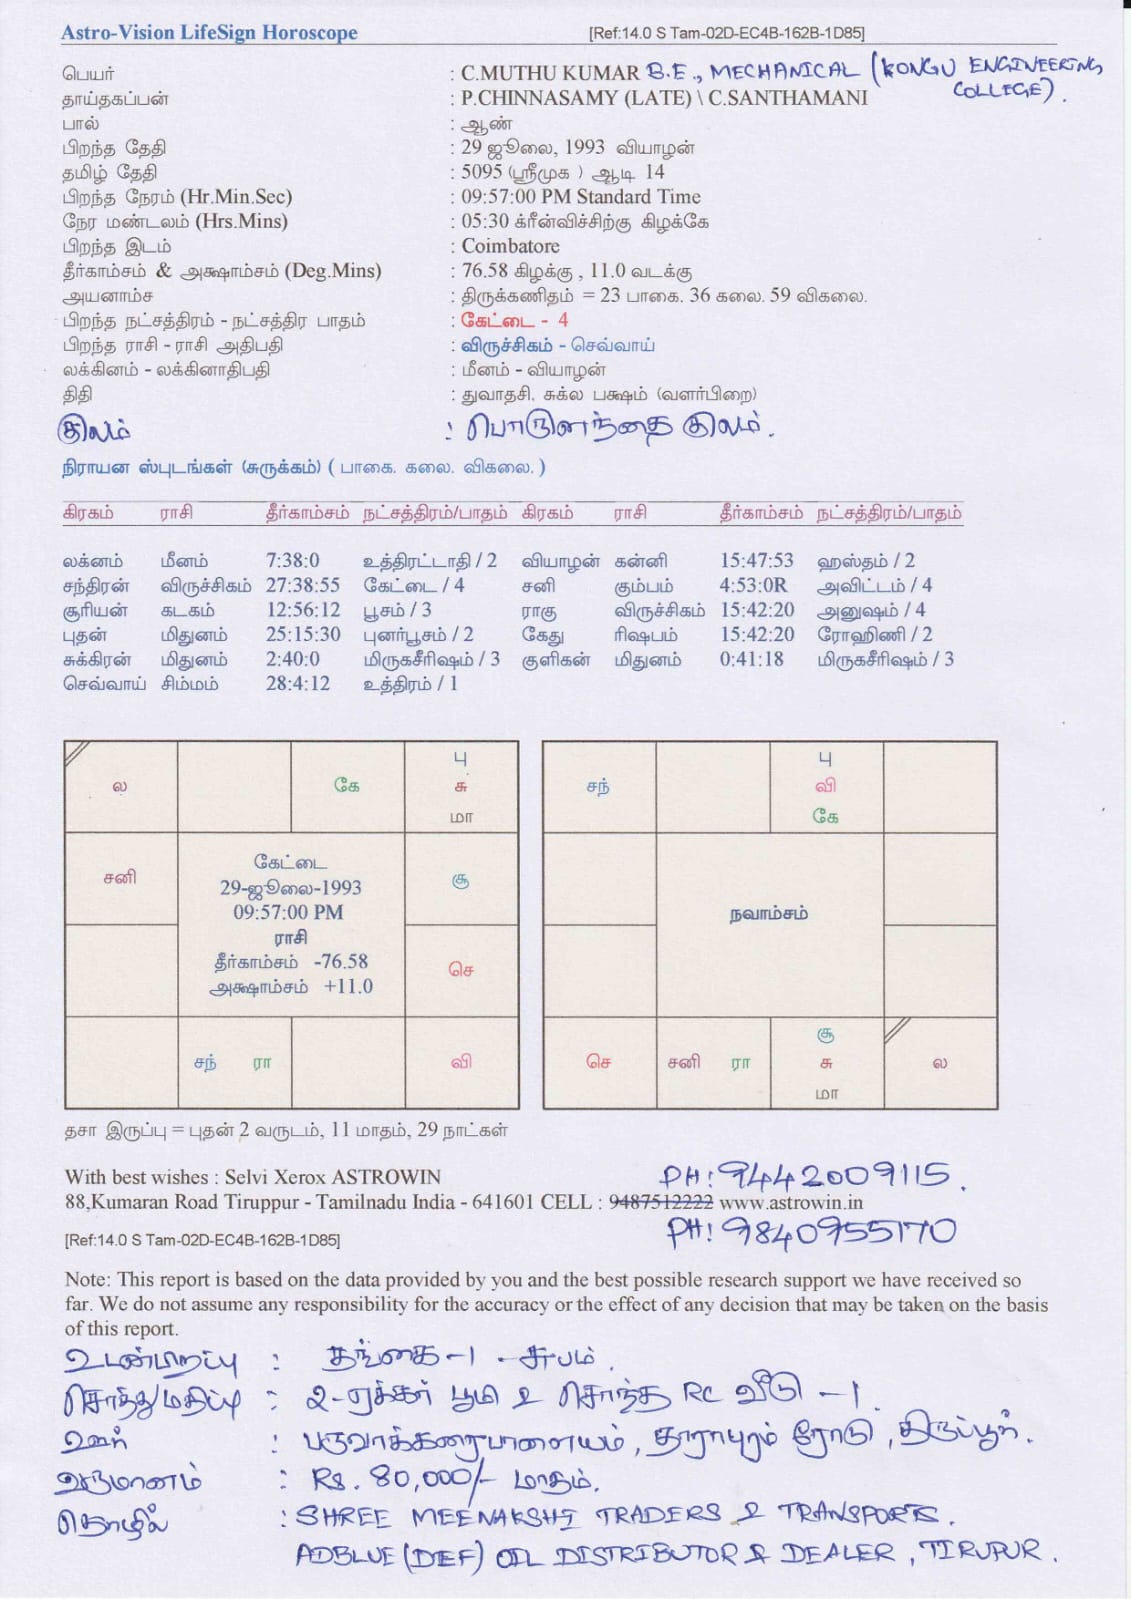 Astro-Vision LifeSign Horoscope [Ref:14.0 S Tam-02D-EC4B-162B-1D85]
பெயர் : C.MUTHU KUMAR B.E., MECHANICAL (KONGU ENGINEERING COLLEGE).
தாய்தகப்பன் : P.CHINNASAMY (LATE) \ C.SANTHAMANI
பால் : ஆண்
பிறந்த தேதி : 29 ஜூலை, 1993 வியாழன்
தமிழ் தேதி : 5095 (ஸ்ரீமுக ) ஆடி 14
பிறந்த நேரம் (Hr.Min.Sec) : 09:57:00 PM Standard Time
நேர மண்டலம் (Hrs.Mins) : 05:30 க்ரீன்விச்சிற்கு கிழக்கே
பிறந்த இடம் : Coimbatore
தீர்காம்சம் & அக்ஷாம்சம் (Deg.Mins) : 76.58 கிழக்கு , 11.0 வடக்கு
அயனாம்ச : திருக்கணிதம் = 23 பாகை. 36 கலை. 59 விகலை.
பிறந்த நட்சத்திரம் - நட்சத்திர பாதம் : கேட்டை - 4
பிறந்த ராசி - ராசி அதிபதி : விருச்சிகம் - செவ்வாய்
லக்கினம் - லக்கினாதிபதி : மீனம் - வியாழன்
திதி : துவாதசி, சுக்ல பக்ஷம் (வளர்பிறை)
குலம் : பொருளந்தை குலம்.
நிராயன ஸ்புடங்கள் (சுருக்கம்) ( பாகை. கலை. விகலை. )
கிரகம் ராசி தீர்காம்சம் நட்சத்திரம்/பாதம் கிரகம் ராசி தீர்காம்சம் நட்சத்திரம்/பாதம்
லக்னம் மீனம் 7:38:0 உத்திரட்டாதி / 2 வியாழன் கன்னி 15:47:53 ஹஸ்தம் / 2
சந்திரன் விருச்சிகம் 27:38:55 கேட்டை / 4 சனி கும்பம் 4:53:0R அவிட்டம் / 4
சூரியன் கடகம் 12:56:12 பூசம் / 3 ராகு விருச்சிகம் 15:42:20 அனுஷம் / 4
புதன் மிதுனம் 25:15:30 புனர்பூசம் / 2 கேது ரிஷபம் 15:42:20 ரோஹிணி / 2
சுக்கிரன் மிதுனம் 2:40:0 மிருகசீரிஷம் / 3 குளிகன் மிதுனம் 0:41:18 மிருகசீரிஷம் / 3
செவ்வாய் சிம்மம் 28:4:12 உத்திரம் / 1
ல கே பு சு மா
சனி சூ
செ
சந் ரா வி
கேட்டை
29-ஜூலை-1993
09:57:00 PM
ராசி
தீர்காம்சம் -76.58
அக்ஷாம்சம் +11.0
சந் பு வி கே
நவாம்சம்
செ சனி ரா சூ சு மா ல
தசா இருப்பு = புதன் 2 வருடம், 11 மாதம், 29 நாட்கள்
With best wishes : Selvi Xerox ASTROWIN PH: 9442009115.
88,Kumaran Road Tiruppur - Tamilnadu India - 641601 CELL : 9487512222 www.astrowin.in
PH: 9840955170
[Ref:14.0 S Tam-02D-EC4B-162B-1D85]
Note: This report is based on the data provided by you and the best possible research support we have received so
far. We do not assume any responsibility for the accuracy or the effect of any decision that may be taken on the basis
of this report.
உடன்பிறப்பு : தங்கை -1 - சுபம்.
சொத்து மதிப்பு : 2-ஏக்கர் பூமி & சொந்த RC வீடு -1.
ஊர் : பருவாக்கரைபாளையம், தாராபுரம் ரோடு, திருப்பூர்.
வருமானம் : Rs. 80,000/- மாதம்.
தொழில் : SHREE MEENAKSHI TRADERS & TRANSPORTS.
ADBLUE (DEF) OIL DISTRIBUTOR & DEALER, TIRUPUR.